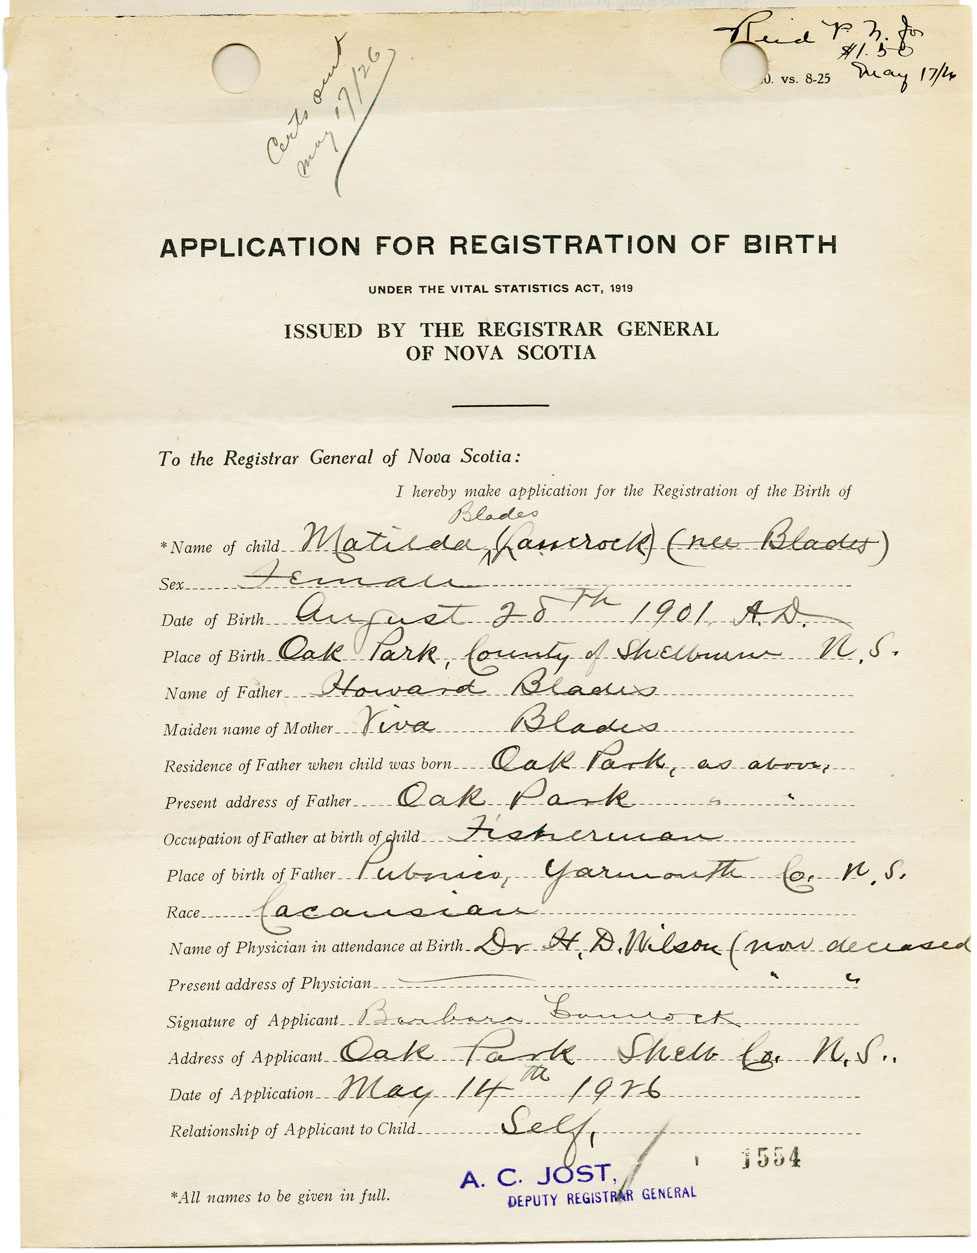 Reid P. N. Jos
$1.50
0. vs. 8-25 May 17/26
Certs sent
May 17/26
APPLICATION FOR REGISTRATION OF BIRTH
UNDER THE VITAL STATISTICS ACT, 1919
ISSUED BY THE REGISTRAR GENERAL
OF NOVA SCOTIA
To the Registrar General of Nova Scotia:
I hereby make application for the Registration of the Birth of
Blades
*Name of child Matilda (Lamrock) (nee Blades)
Sex Female
Date of Birth August 28th 1901. A.D.
Place of Birth Oak Park, County of Shelburne N.S.
Name of Father Howard Blades
Maiden name of Mother Viva Blades
Residence of Father when child was born Oak Park, as above,
Present address of Father Oak Park " "
Occupation of Father at birth of child Fisherman
Place of birth of Father Pubnico, Yarmouth Co. N.S.
Race Cacausian
Name of Physician in attendance at Birth Dr H. D. Wilson (now deceased
Present address of Physician " "
Signature of Applicant Barbara Lamrock
Address of Applicant Oak Park Shelb Co. N.S..
Date of Application May 14th 1926
Relationship of Applicant to Child Self,
1554
A. C. JOST,
DEPUTY REGISTRAR GENERAL
*All names to be given in full.